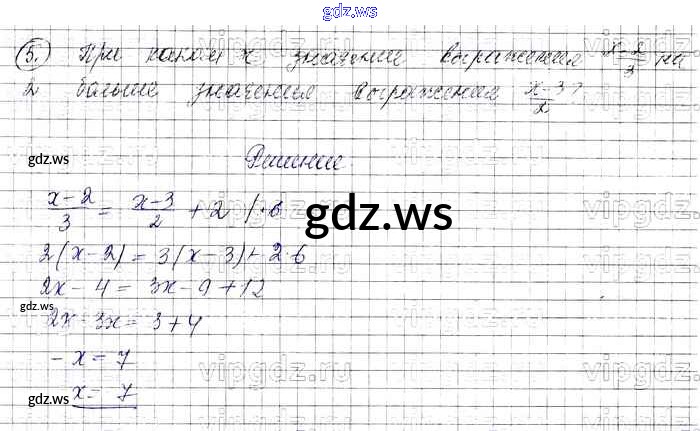 gdz.ws
5. При каком x значение выражения x-2/3 на
2 больше значения выражения x-3/2?
gdz.ws
Решение.
x-2/3 = x-3/2 + 2 /·6
gdz.ws
2(x-2) = 3(x-3)+2·6
2x - 4 = 3x - 9 + 12
gdz.ws
2x - 3x = 3 + 4
- x = 7
gdz.ws
x = - 7
gdz.ws
vipgdz.ru